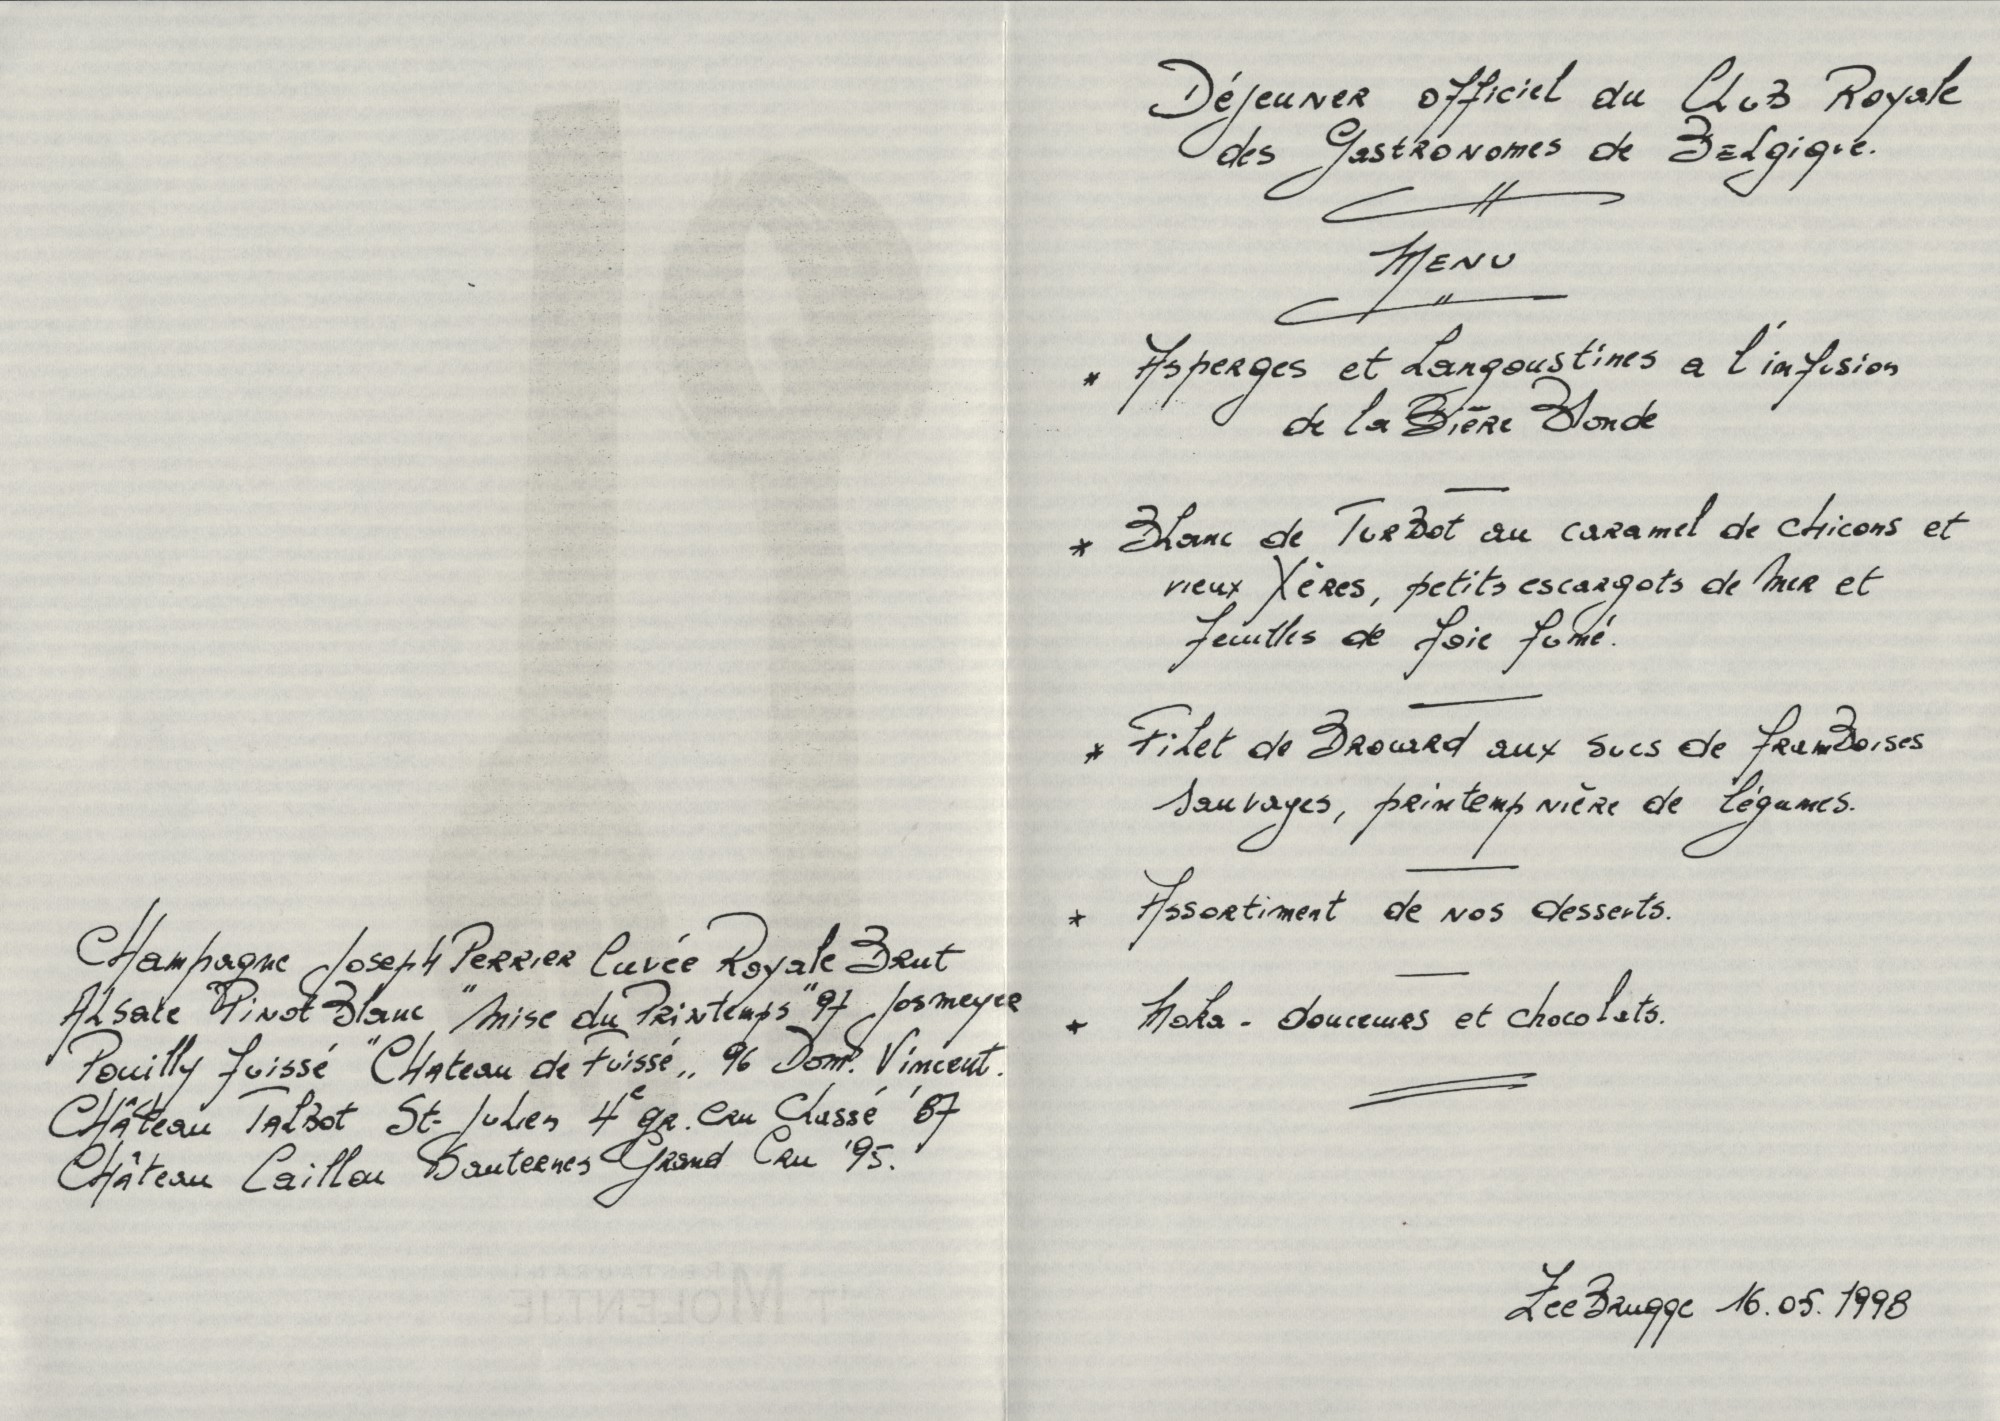 Champagne Joseph Perrier Cuvée Royale Brut
Alsace "Pinot Blanc "Mise du Printemps" 97 Josmeyer
Pouilly fuissé "Château de Fuissé" 96 Dom. Vincent.
Château Talbot St-Julien 4e gr. cru Classé '87
Château Caillou Sauternes Grand Cru '95.
RESTAURANT
'T MOLENTJE
Déjeuner officiel du Club Royale
des Gastronomes de Belgique.
MENU
* Asperges et Langoustines a l'infusion
de la Bière Blonde
* Blanc de Turbot au caramel de chicons et
vieux Xères, petits escargots de Mer et
feuilles de foie fumé.
* Filet de Brouard aux sucs de framboises
sauvages, printempnière de légumes.
* Assortiment de nos desserts.
* Moka - douceurs et chocolats.
Zeebrugge 16.05.1998